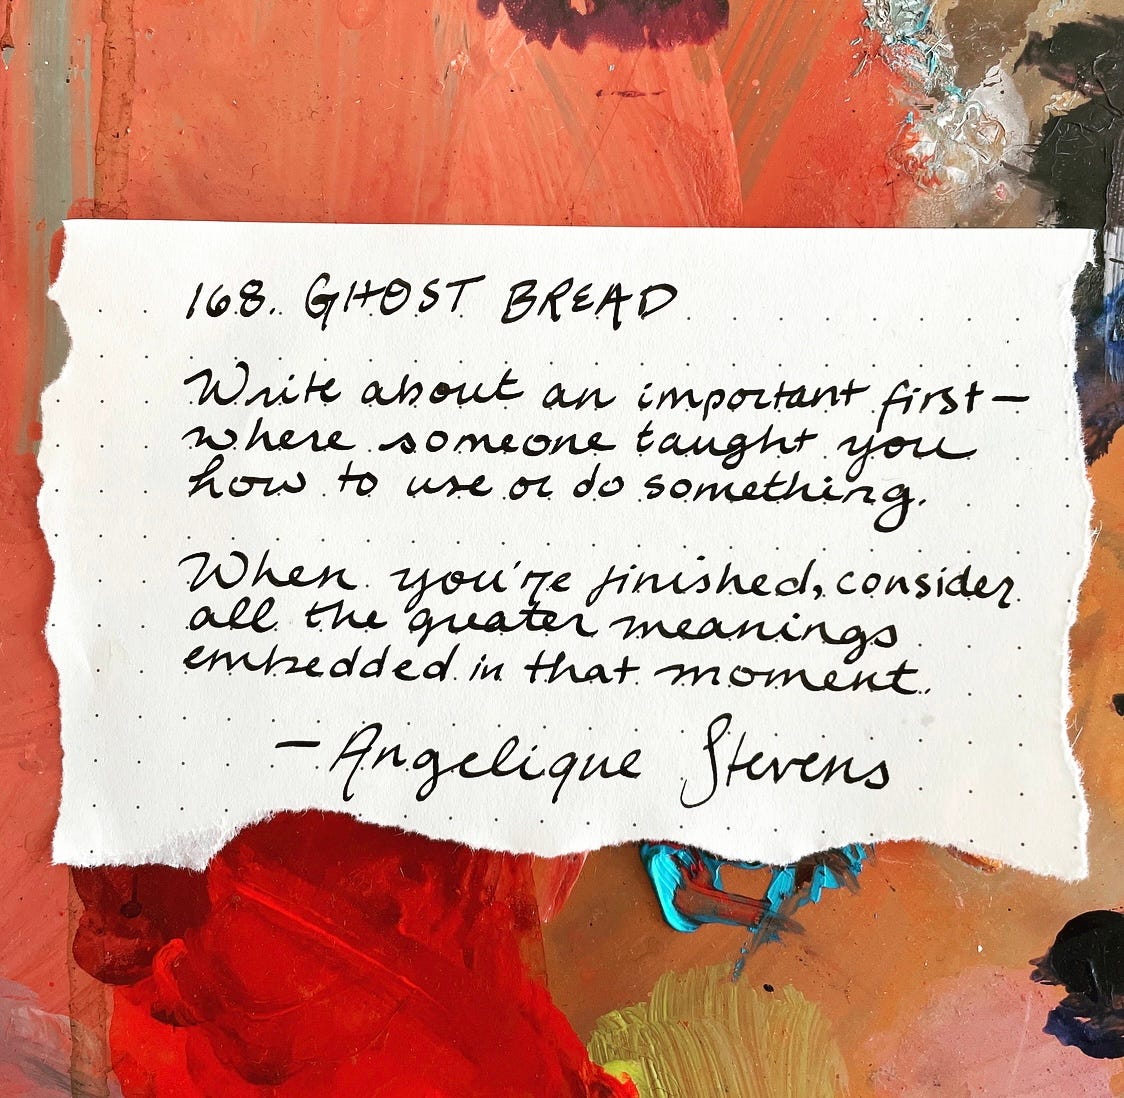 168. GHOST BREAD
Write about an important first—
where someone taught you
how to use or do something.
When you're finished, consider
all the greater meanings
embedded in that moment.
— Angelique Stevens